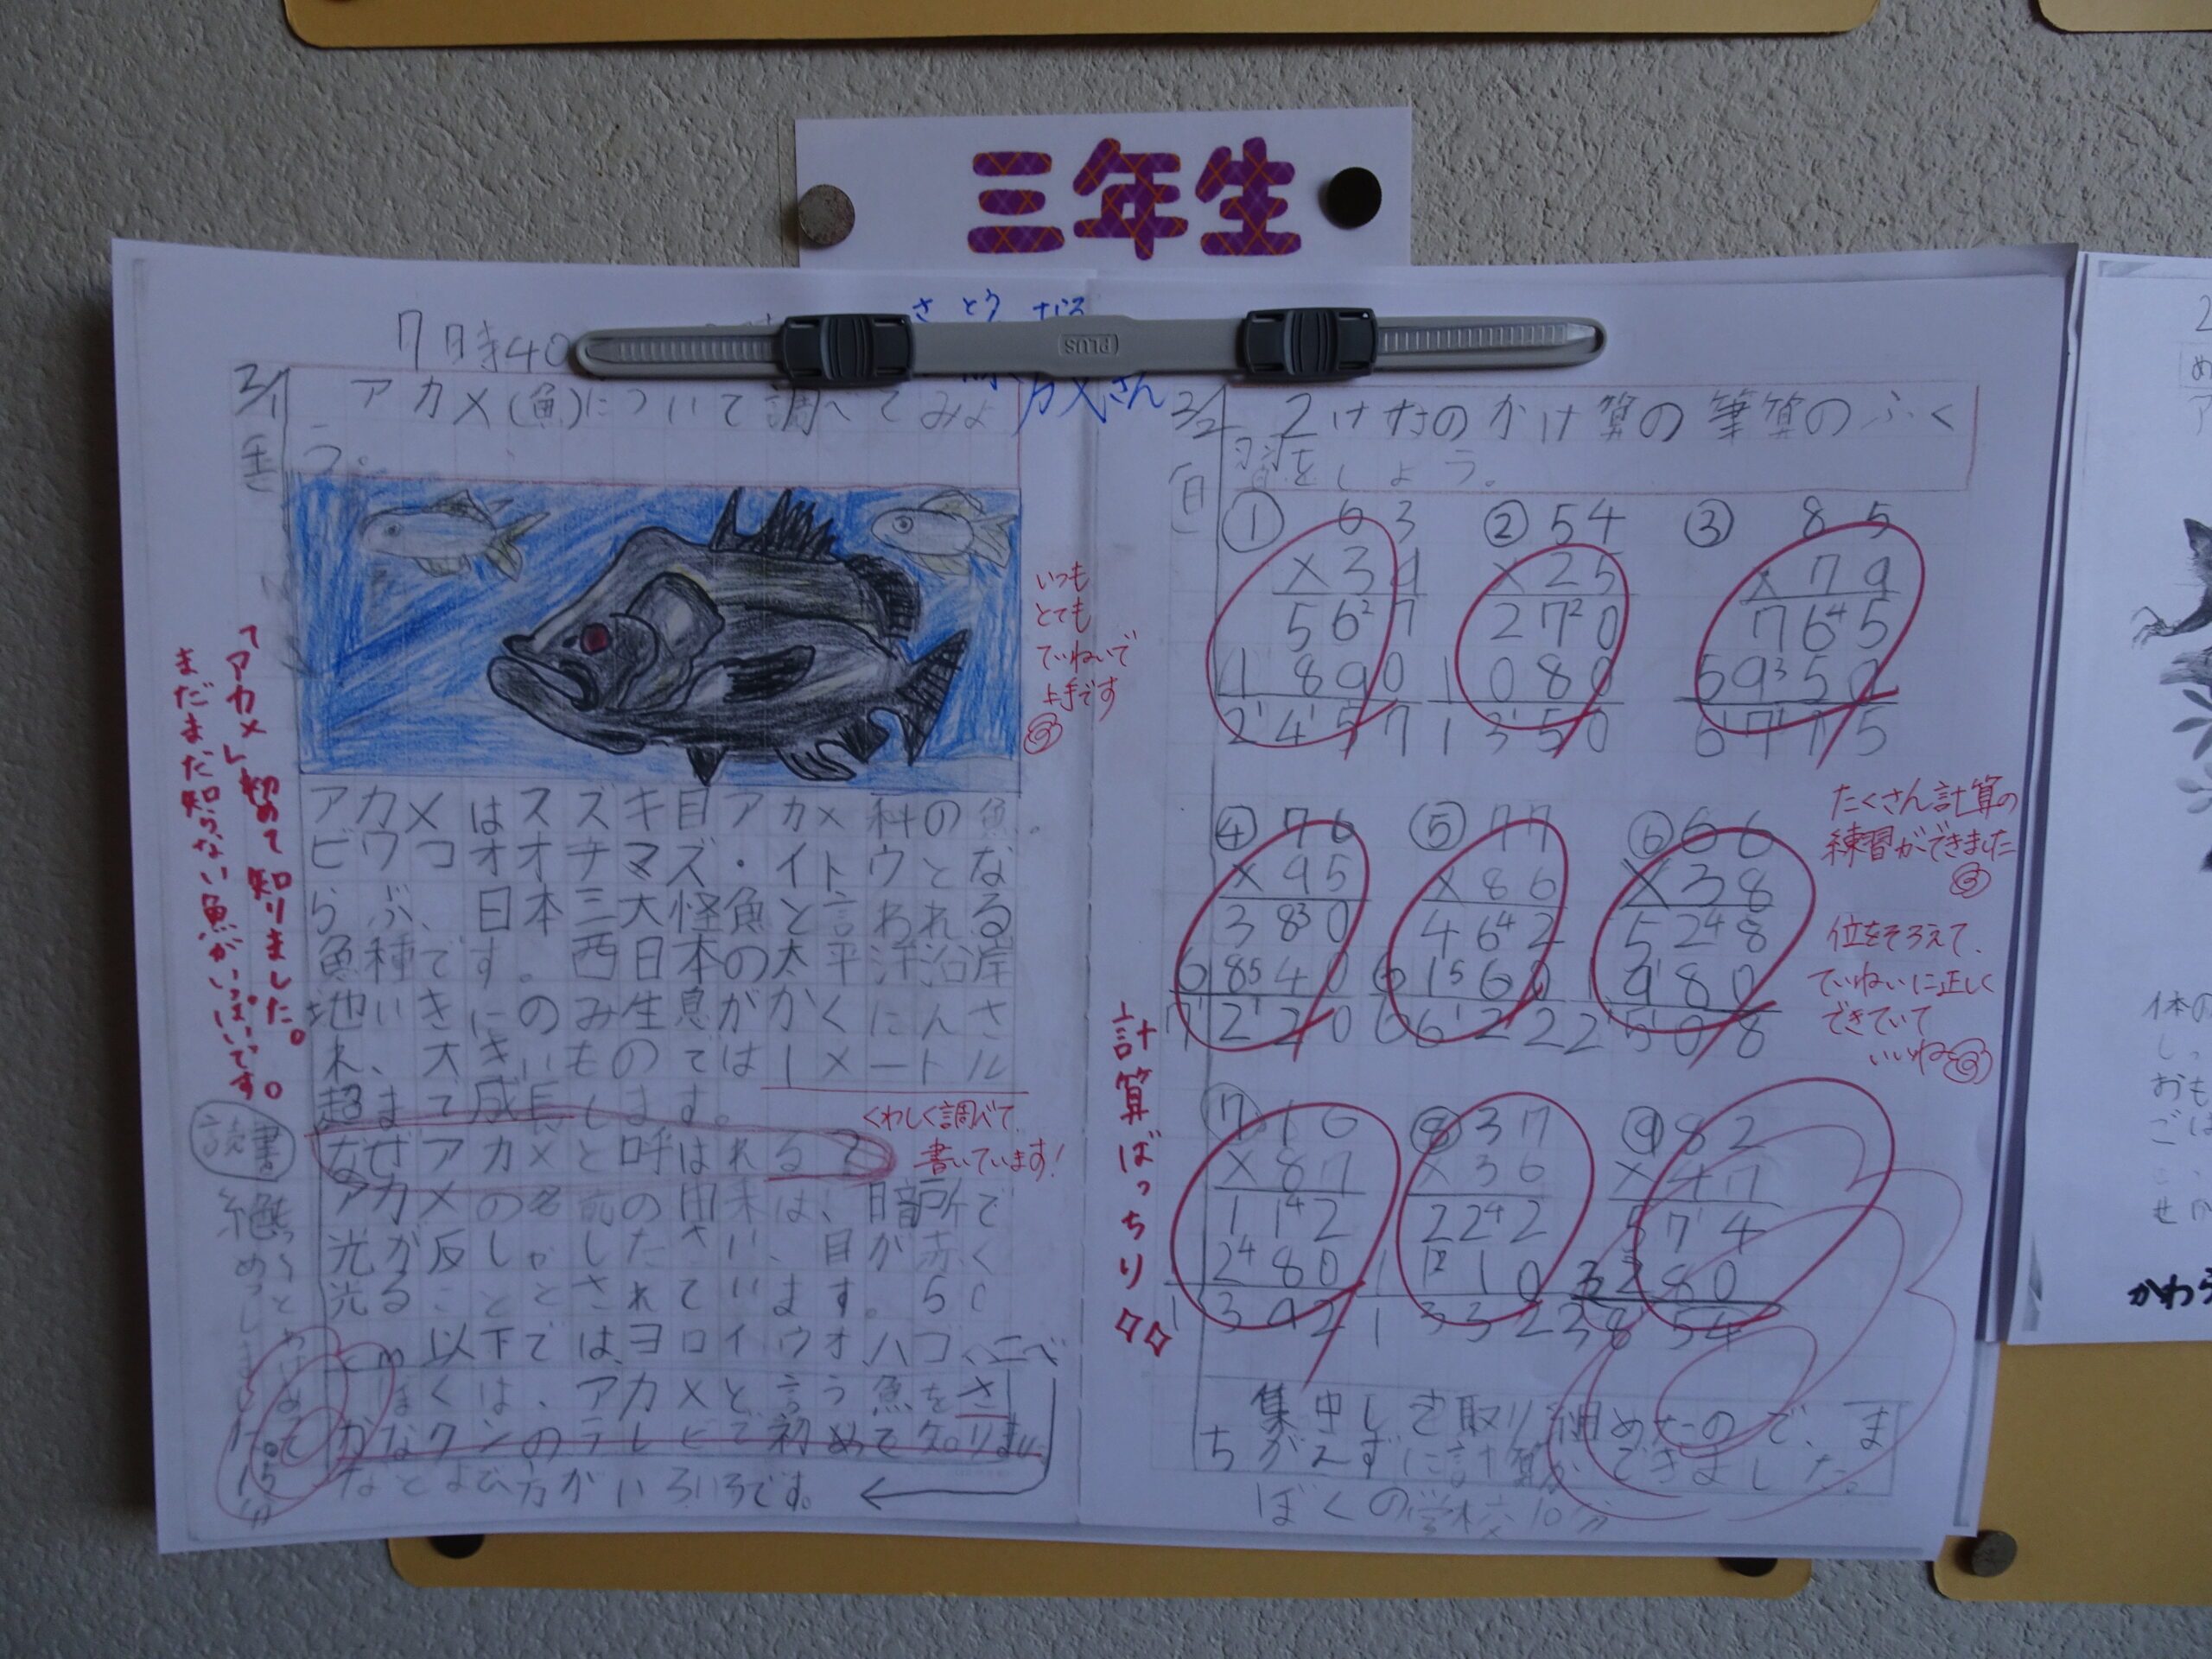 三年生
PLUS
さとう なる
7時40
2/1
アカメ(魚)について調べてみよ
う。
いつも
とても
ていねいで
上手です
「アカメ」初めて知りました。
まだまだ知らない魚がいっぱいです。
アカメはスズキ目アカメ科の魚。
ビワコオオナマズ・イトウとな
らぶ、日本三大怪魚と言われる
魚種です。西日本の太平洋沿岸
地いきにのみ生息がかくにんさ
れ、大きいものでは1メートル
超まで成長します。
くわしく調べて、
書いています!
なぜアカメと呼ばれる?
アカメの名前の由来は、暗所で
光が反しゃしたさい、目が赤く
光ることとされています。50
cm以下では、ヨロイウオ、ハコ、
ぼくは、アカメと言う魚をさ
かなクンのテレビで初めて知りま
などよび方がいろいろです。
読書
2/2
(日)
2けたのかけ算の筆算のふく
習をしよう。
① 63
×39
567
1890
2457
② 54
×25
270
1080
1350
③ 85
×79
765
5950
6715
④ 76
×95
380
6840
7220
⑤ 77
×86
462
6160
6622
⑥ 66
×38
528
1980
2508
⑦ 16
×87
112
1280
1392
⑧ 37
×36
222
1110
1332
⑨ 82
×47
574
3280
3854
たくさん計算の
練習ができました
位をそろえて、
ていねいに正しく
できていて
いいね
計算ばっちり
集中して取り組めたので、ま
ちがえずに計算ができました。
ぼくの学校 10分
かわう